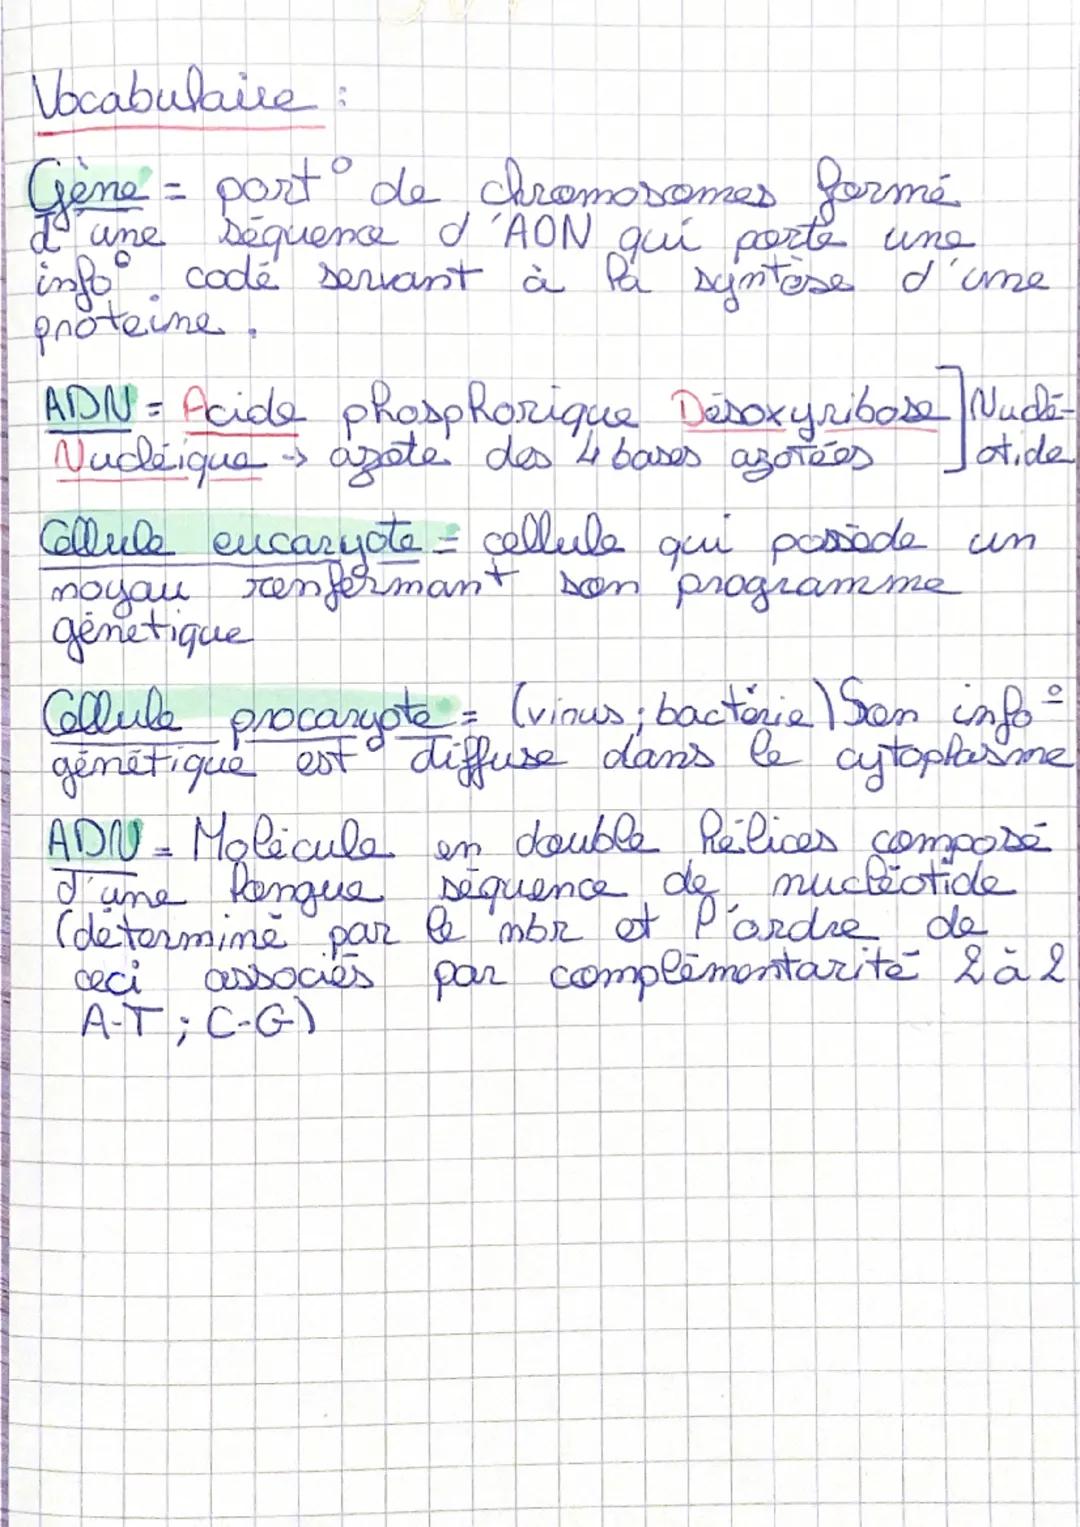 Vocabulaire :
Gène = port° de chromosomes formé
d'une séquence d'ADN qui porte une
info° codé servant à la syntèse d'une
proteine.
ADN = Acide phosphorique Désoxyribose ] Nuclé-
Nucléique → azote des 4 bases azotées ] otide
Cellule eucaryote = cellule qui possède un
noyau renfermant son programme
génétique
Cellule procaryote = (virus ; bactérie) Son info°
génétique est diffuse dans le cytoplasme
ADN = Molécule en double hélices composé
d'une longue séquence de nucléotide
(déterminé par le nbr et l'ordre de
ceci associés par complémentarité 2 à 2
A-T ; C-G)